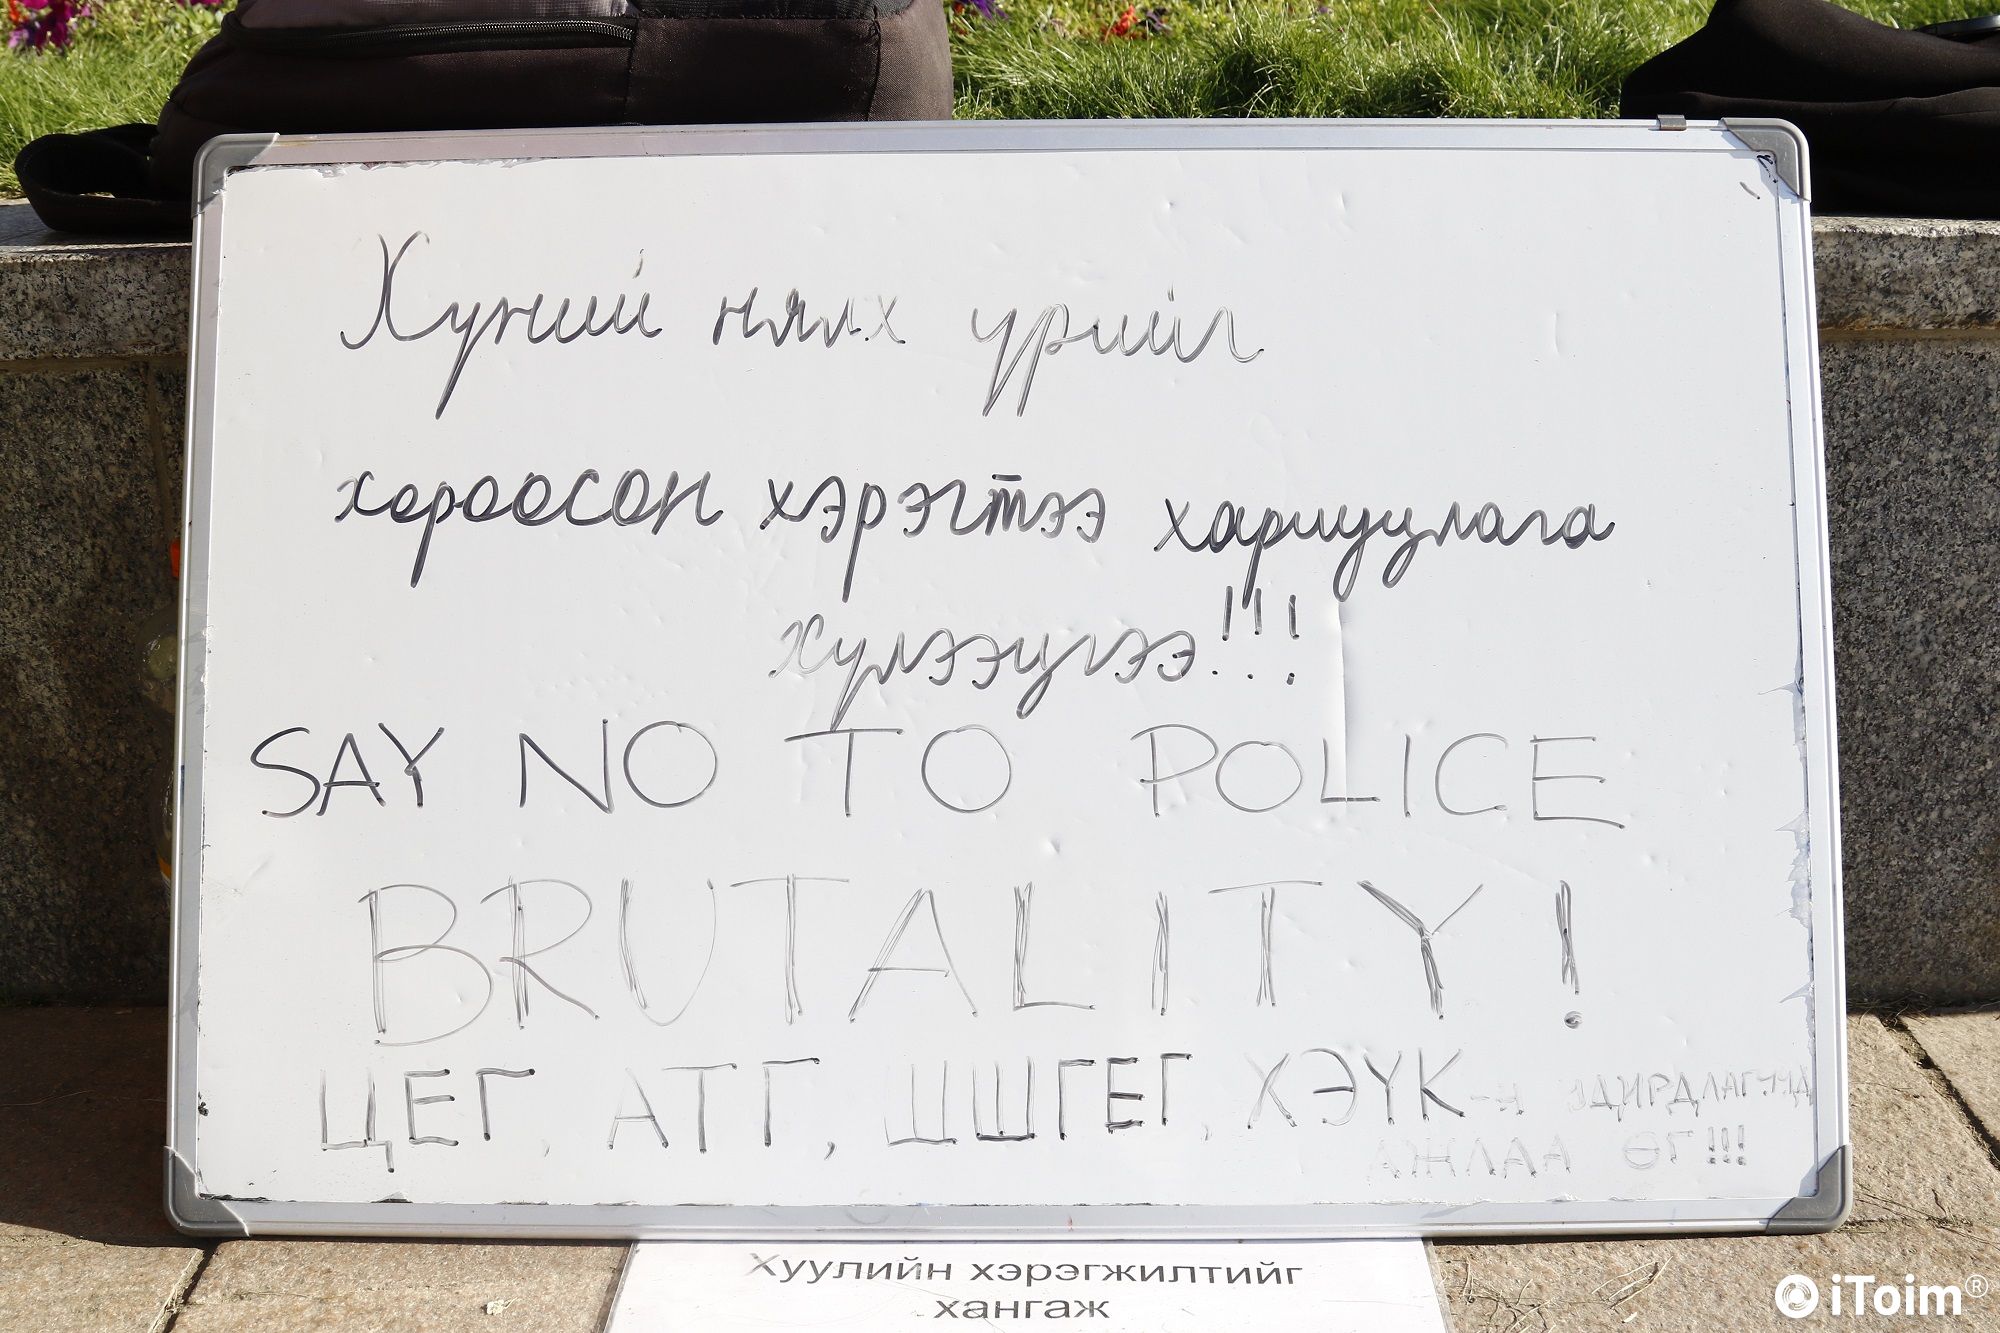 Хүний нялх үрийг
хороосон хэрэгтээ хариуцлага
хүлээцгээ!!!
SAY NO TO POLICE
BRUTALITY!
ЦЕГ, АТГ, ШШГЕГ, ХЭҮК-н УДИРДЛАГУУД
АЖЛАА ӨГ!!!
Хуулийн хэрэгжилтийг
хангаж
iToim®